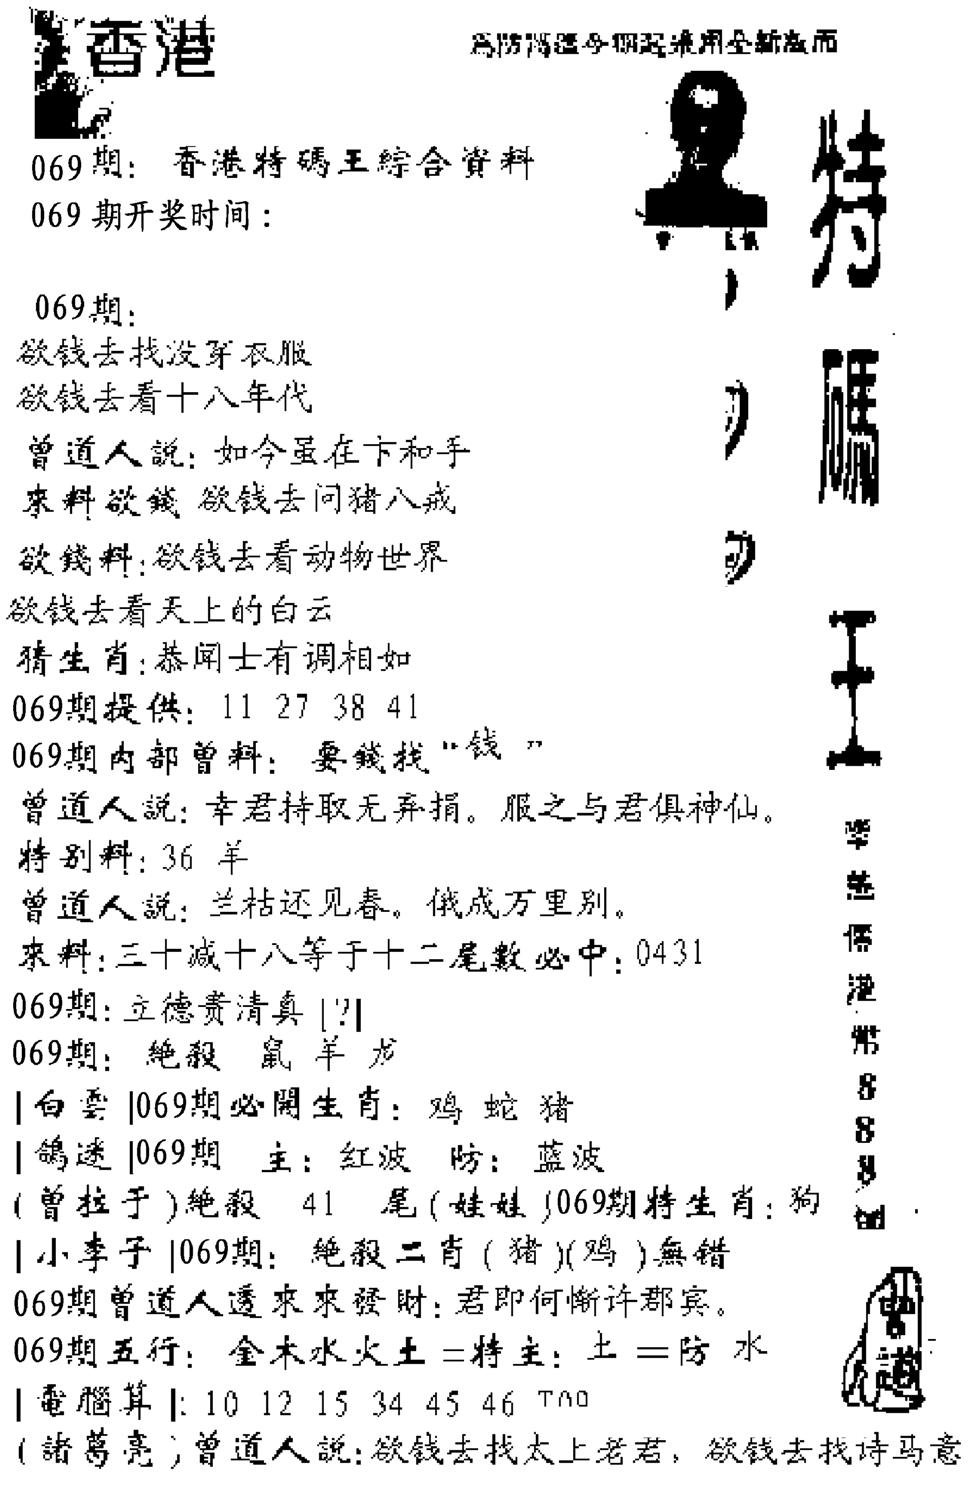 香港
為防高溫今期起采用全新版面
069期：香港特碼王綜合資料
069期开奖时间：
069期：
欲钱去找没穿衣服
欲钱去看十八年代
曾道人説：如今虽在卞和手
來料欲錢 欲钱去问猪八戒
欲錢料：欲钱去看动物世界
欲钱去看天上的白云
猜生肖：恭闻士有调相如
069期提供：11 27 38 41
069期内部曾料：要錢找“钱”
曾道人説：幸君持取无弃捐。服之与君俱神仙。
特别料：36 羊
曾道人説：兰枯还见春。俄成万里别。
來料：三十减十八等于十二尾數必中：0431
069期：立德贵清真 |?|
069期：絶殺 鼠 羊 龙
|白雲|069期必開生肖：鸡 蛇 猪
|鴿迷|069期 主：红波 防：蓝波
(曾拉于)絶殺 41 尾(娃娃)069期特生肖：狗
|小李子|069期：絶殺二肖(猪)(鸡)無错
069期曾道人透來來發財：君即何惭许郡宾。
069期五行：金木水火土=特主：土=防 水
|電腦算|：10 12 15 34 45 46
(諸葛亮)曾道人説：欲钱去找太上老君，欲钱去找诗马意
特碼王
香港
888
曾道